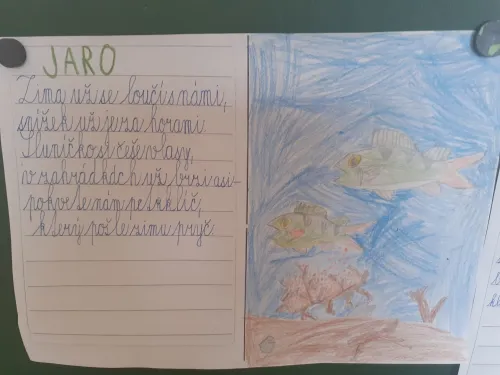 JARO
Zima už se loučí s námi,
snížek už je za horami.
Sluníčko si češe vlasy,
v zahrádkách už brzi asi
pokvete nám petrklíč,
který pošle zimu pryč.